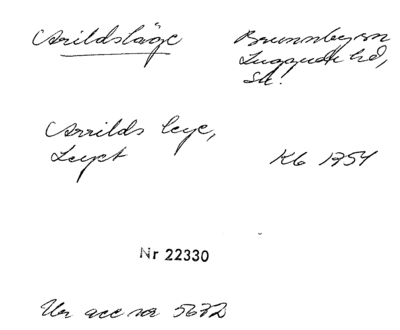 Arildsläge
Brunnby sn
Luggude hd,
Sk.
Arrilds leye,
Leyet
K6 1754
Nr 22330
Ur acc nr 5672